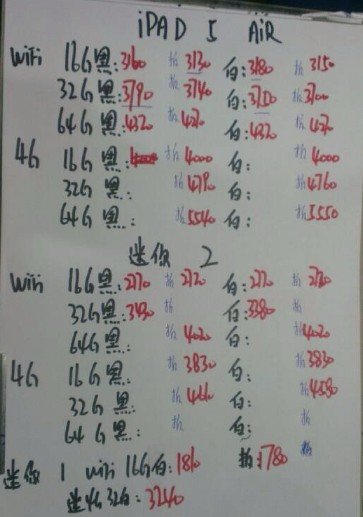 iPAD 5 AiR
WiFi 16G黑:3160 拆3130 白:3180 拆3150
32G黑:3790 拆3740 白:3750 拆3700
64G黑:4320 拆4270 白:4320 拆4270
4G 16G黑: 拆4000 白: 拆4000
32G黑: 拆4790 白: 拆4760
64G黑: 拆5540 白: 拆5550
迷你 2
Wifi 16G黑:2770 拆2720 白:2770 拆2720
32G黑:3430 拆 白:3380 拆
64G黑: 拆4020 白: 拆4020
4G 16G黑: 拆3830 白: 拆3830
32G黑: 拆4660 白: 拆4580
64G黑: 拆 白: 拆
迷你 1 wifi 16G白:1810 拆:1780 拆
迷4G 32白:3240